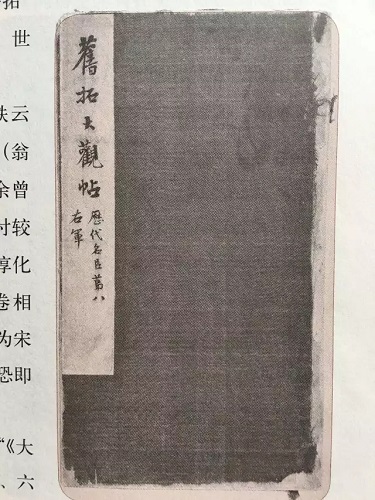 舊拓大觀帖
歷代名臣第八
右軍
世
云
（翁
余曾
付较
淳化
卷相
为宋
恐即
“《大
、六